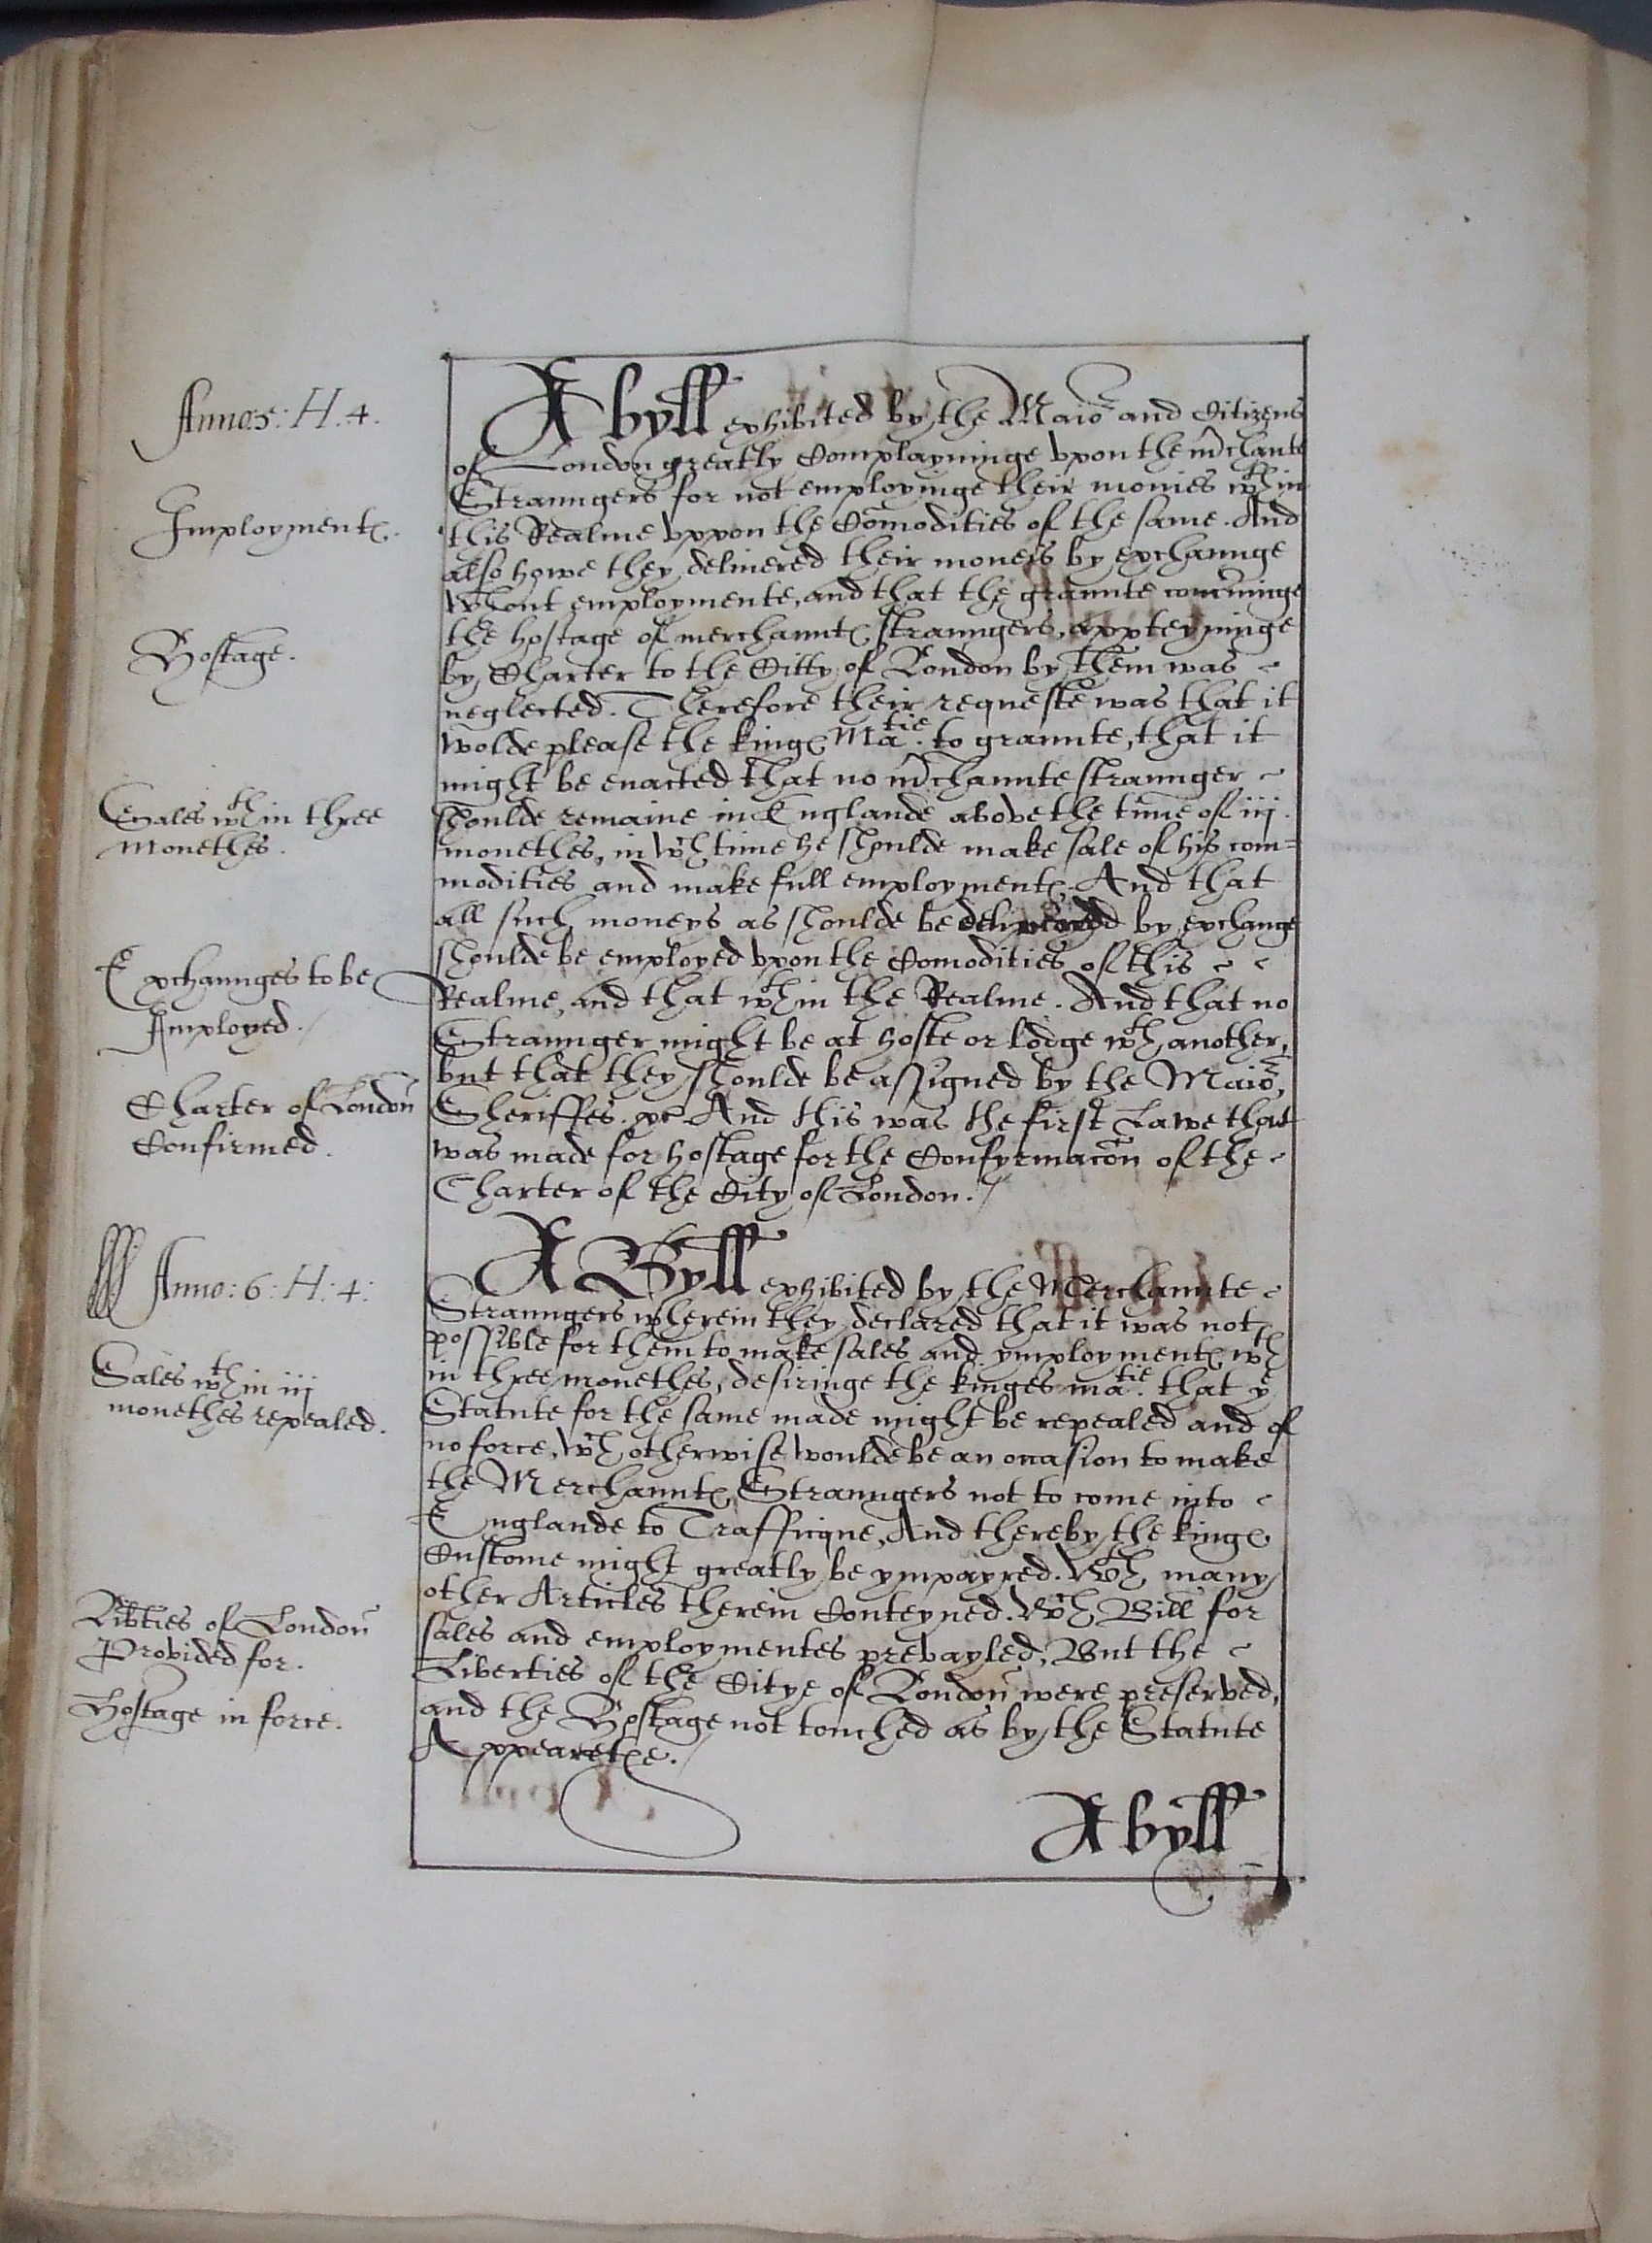 Anno: 5: H. 4.
A byll exhibited by the Maio and Citizens
of London greatly Complayninge vpon the m̃chante
Imploymentꝭ.
Straungers for not employinge their monies wth in
this Realme vppon the Com̃odities of the same. And
also howe they deliuered their moneis by exchaunge
wthout employmente, and that the graunte concerninge
Hostage.
the hostage of merchauntꝭ straungers, appteyninge
by Charter to the Citty of London by them was
neglected. Therefore their requeste was that it
wolde please the kingꝭ Ma.tie to graunte, that it
might be enacted that no m̃chaunte straunger
Sales wth in three
monethes.
shoulde remaine in Englande above the time of iij.
monethes, in wch time he shoulde make sale of his com=
modities and make full employmentꝭ. And that
all such moneys as shoulde be delivered by exchange
Exchaunges to be
Imployed.
shoulde be employed vpon the Com̃odities of this
Realme, and that wth in the Realme. And that no
Straunger might be at hoste or lodge wth another,
but that they shoulde be assigned by the Maio,
Charter of London
Confirmed.
Sheriffes. &c And this was the first Lawe that
was made for hostage for the Confyrmac̃on of the
Charter of the City of London.
Anno: 6: H: 4:
A Byll exhibited by the Merchaunte
Straungers wherein they declared that it was not
possible for them to make sales and ymploymentꝭ wth
Sales wth in iij
monethes repealed.
in three monethes, desiringe the kinges ma.tie that ye
Statute for the same made might be repealed and of
no force, wch otherwise woulde be an occasion to make
the Merchauntꝭ Straungers not to come into
Englande to Trafficque, And thereby the kingꝭ
Custome might greatly be ympayred. Wth many
other Articles therein Conteyned. Wch Bill for
Lib̃ties of London
Provided for.
sales and employmentes prevayled, But the
Liberties of the Citye of London were preserved,
Hostage in force.
and the Hostage not touched as by the Statute
Appearethe.
A byll